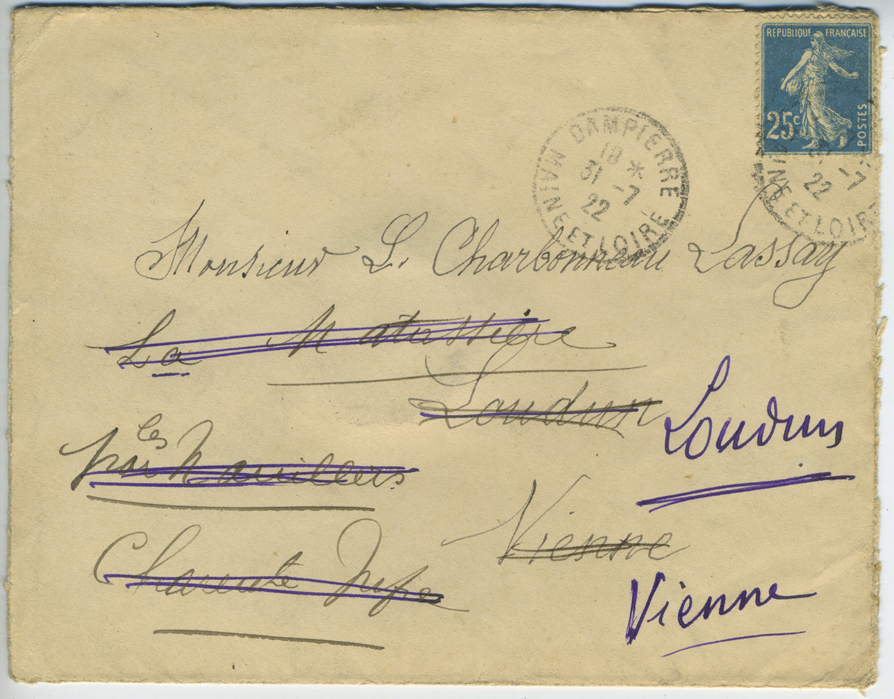 REPUBLIQUE FRANÇAISE
25c
POSTES
DAMPIERRE
18 *
31 -7
22
MAINE ET LOIRE
31 -7
22
MAINE ET LOIRE
Monsieur L. Charbonneau Lassay
La Matassière
Loudun
Loudun
les Nouillers
Vienne
Charente Infre
Vienne